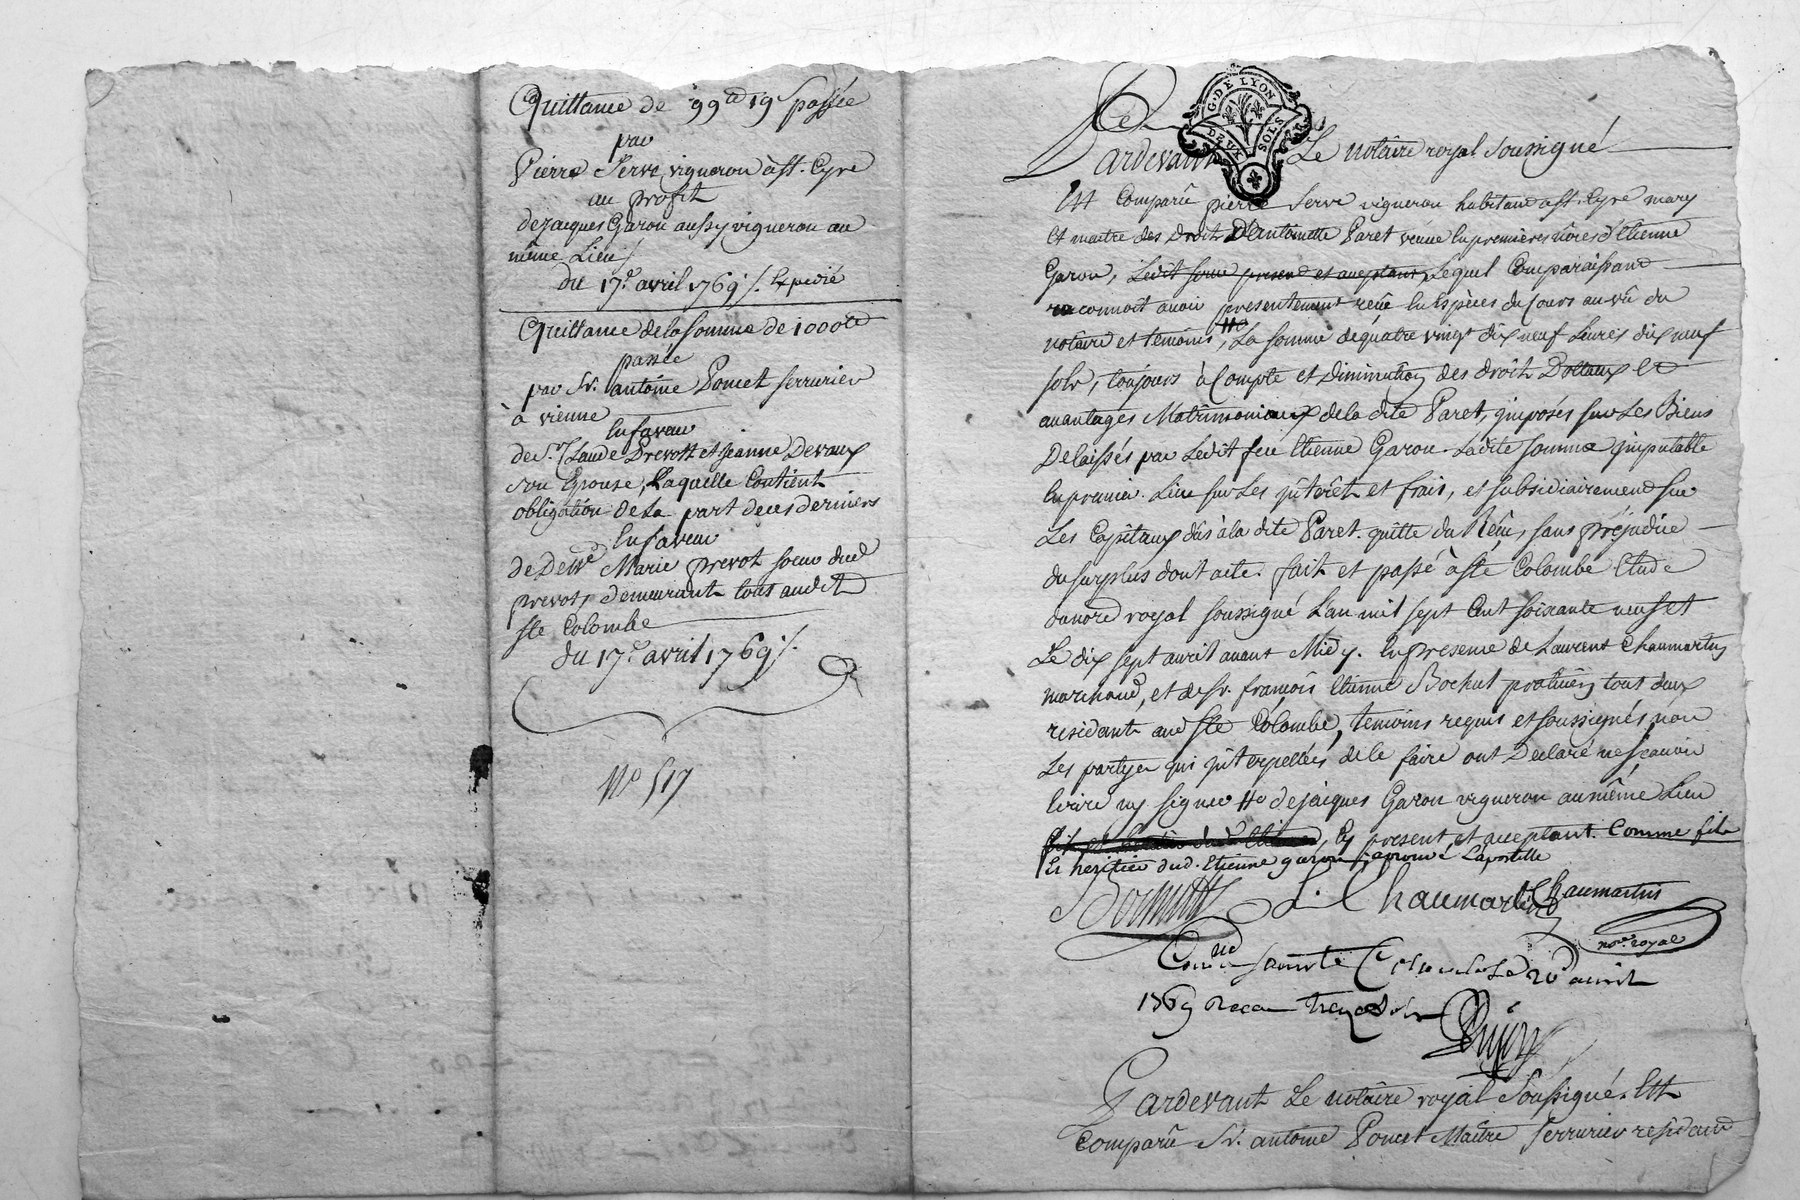 Quittance de 99lt 19s passée
par
Pierre Serve vigneron à st. Cyre
au profit
de jacques Garon aussy vigneron au
même Lieu /
du 17e. avril 1769 /. Expedié
Quittance de la somme de 1000lt
passée
par Sr. antoine Poncet serrurier
à vienne
En faveur
de Sr. Claude Prevost et jeanne Devaux
son Epouse, Laquelle Contient
obligation de La part de ces derniers
En faveur
de Delle Marie prevot soeur dud
prevot, demeurants tous audit
ste Colombe
du 17e. avril 1769 /.
No 517
G. DE LYON
DEUX SOLS
Pardevant Le notaire royal soussigné
Est Comparû pierre Serve vigneron habitant à st. Cyre mary
et maitre des Droits D'Antoinette Paret veuve En premieres nôces d'Etienne
Garon, Ledit serve present et acceptant, Lequel Comparaissant
reconnoit avoir presentement reçû En Espèces du Cours au vû du
notaire et temoins, #o La somme de quatre vingt dix neuf Livres dix neuf
sols, toujours à Compte et Diminution des droits Dottaux et
avantages Matrimoniaux de la dite Paret, imposés sur Les Biens
Delaissés par Ledit feu Etienne Garon. Ladite somme imputable
En premier Lieu sur Les intérêts et frais, et subsidiairement sur
Les Capitaux dûs à la dite Paret. quitte du Reçû, sans préjudice
du surplus dont acte. fait et passé à ste Colombe Etude
du nore royal soussigné L'an mil sept Cent soixante neuf et
Le dix sept avril avant Midy. En presence de Laurent Chaumartin
marchand, et de Sr. françois Etienne Bochut praticien tout deux
residants aud ste Colombe, temoins requis et soussignés non
Les partyes qui interpellées de le faire ont Declaré ne sçavoir
Ecrire ny signer #o de jacques Garon vigneron au même Lieu
, Cy present et acceptant. Comme fils
Et heritier dud. Etienne garon, aprouvé L'apostille
Bochut L. Chaumartin Chaumartin
nore royal
Conlle sainte Colombe Le 20e avril
1769 Reçu treze sols
Pardevant Le notaire royal Soussigné. Est
Comparû Sr. antoine Poncet Maitre serrurier residant